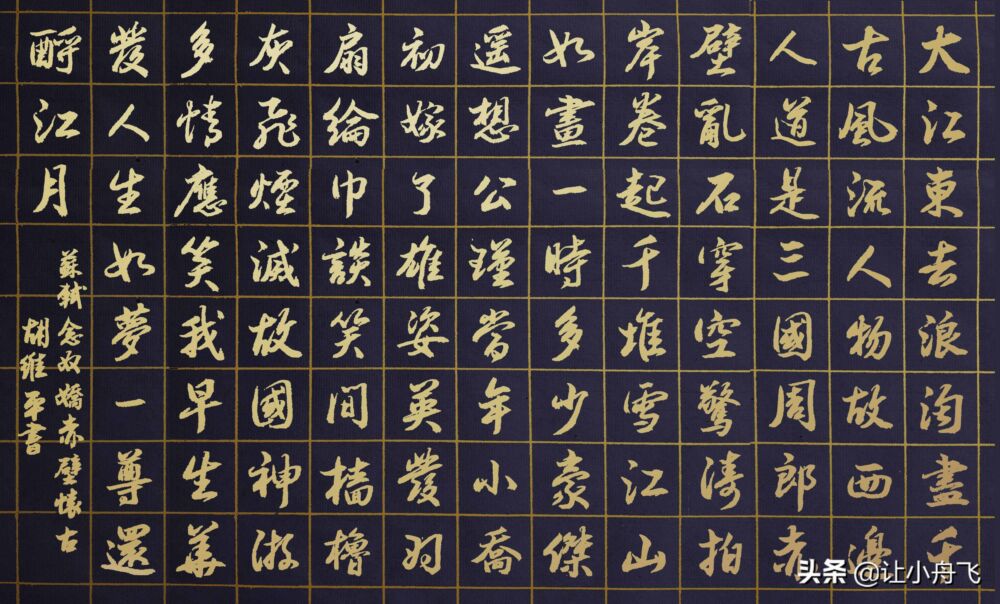 大江東去浪淘盡千
古風流人物故西邊
人道是三國周郎赤
壁亂石穿空驚濤拍
岸卷起千堆雪江山
如畫一時多少豪傑
遥想公瑾當年小喬
初嫁了雄姿英發羽
扇綸巾談笑間檣櫓
灰飛煙滅故國神游
多情應笑我早生華
發人生如夢一尊還
酹江月
蘇軾念奴嬌赤壁懷古
胡維平書
头条 @让小舟飞